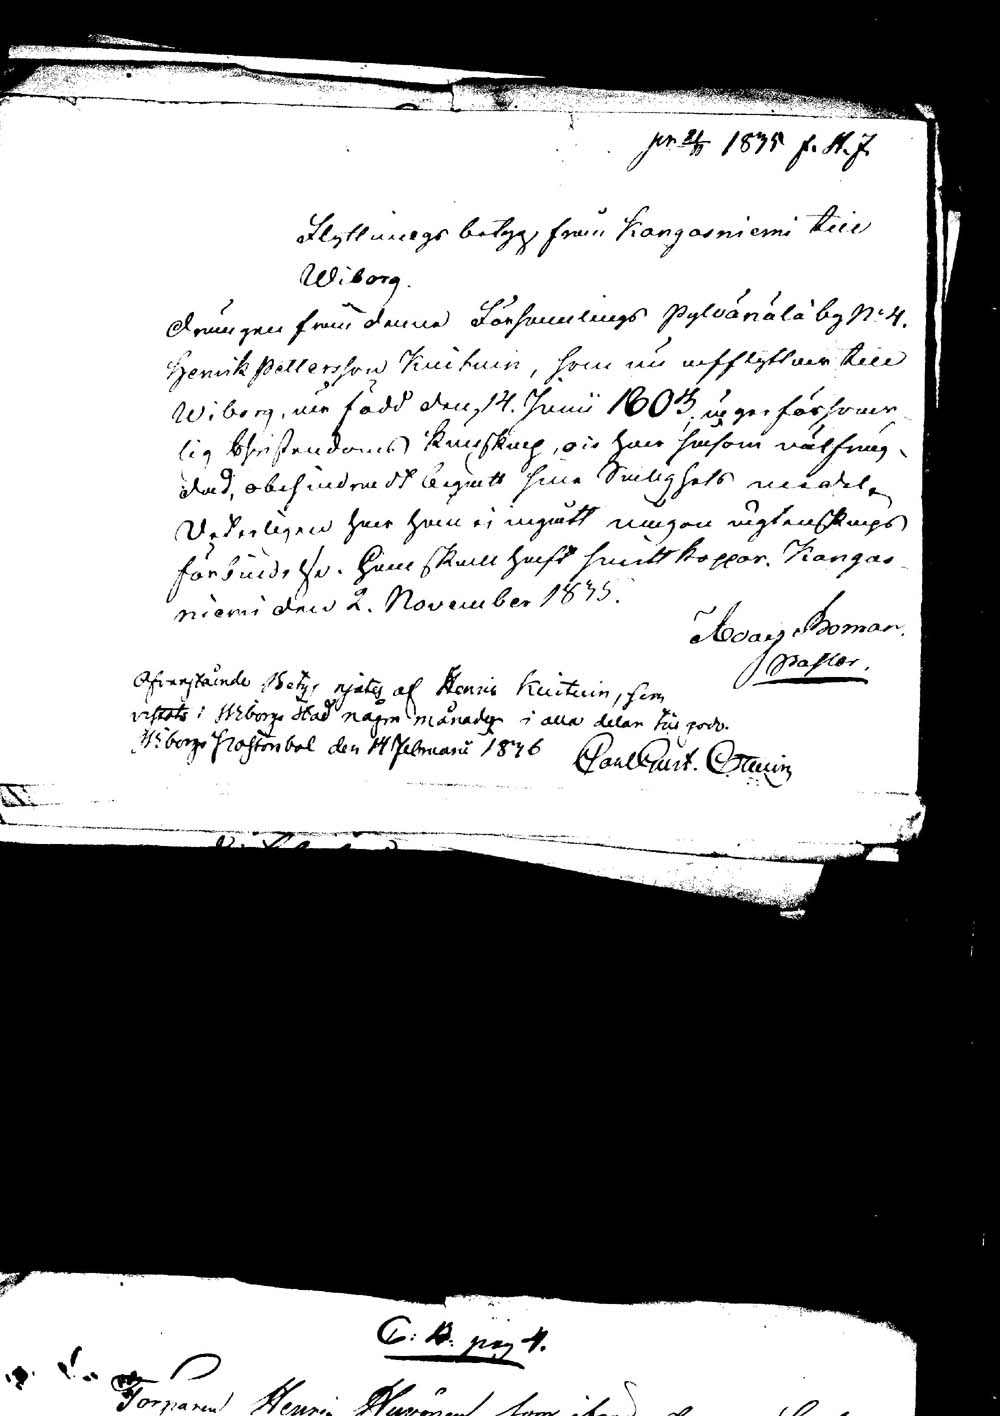 1835 f. H. J.
Flyttnings betyg från Kangasniemi till
Wiborg.
Drängen från denna Församlings Pylvänälä by No 4.
Henrik Pettersson Kuituin, som nu afflyttar till
Wiborg, är född den 14. Junii 1803, äger försvar-
lig Christendoms kunskap, och har såsom välfräg-
dad, obehindradt begått sina Salighets medel.
Veterligen har han ej ingått någon ägtenskaps
förbindelse. Han skall haft smittkoppor. Kangas-
niemi den 2. November 1835.
Adolf Boman.
Pastor.
Ofvanstående Betyg njutes af Henric Kuituin, som
vistats i Wiborgs Stad några månader i alla delar till godo.
Wiborgs Pastorsbol den 14 Februarii 1836 Carl Gust.
C. B. pag 4.
Torparen Henric som